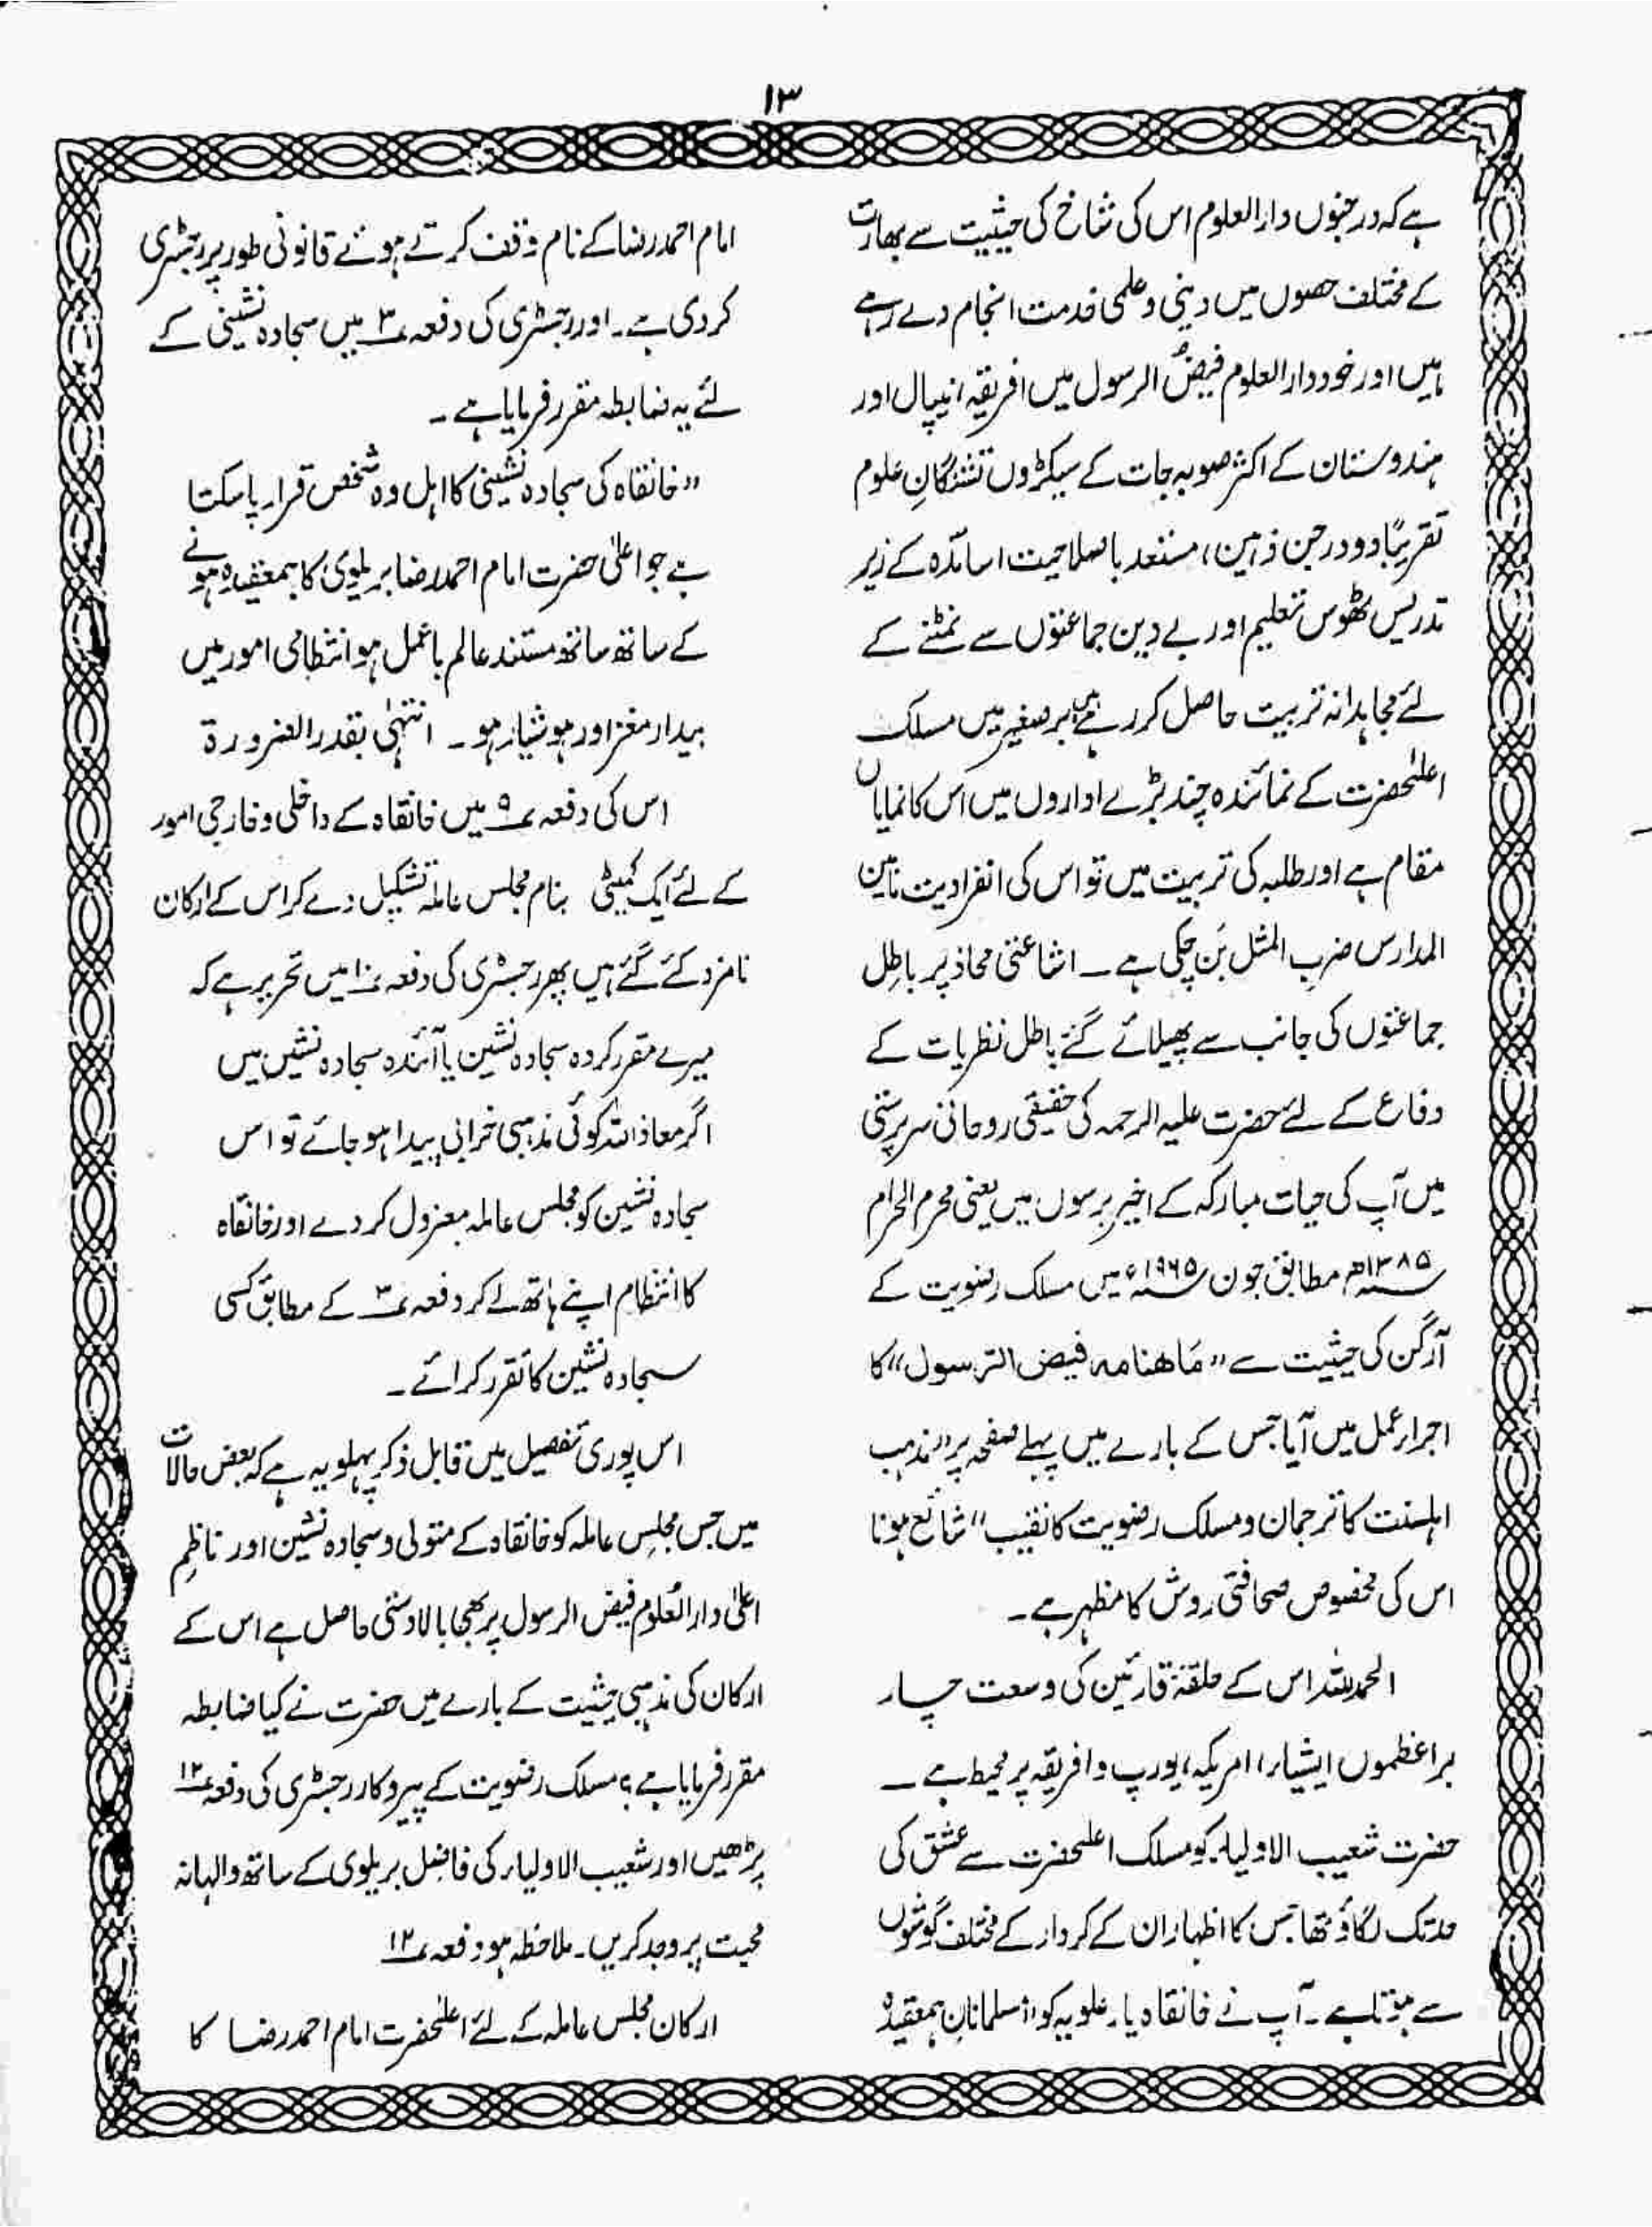 ۱۳
ہے کہ درجنوں دارالعلوم اس کی شاخ کی حیثیت سے بھارت
کے مختلف حصوں میں دینی و علمی خدمت انجام دے رہے
ہیں اور خود دارالعلوم فیض الرسول میں افریقہ، نیپال اور
ہندوستان کے اکثر صوبہ جات کے سیکڑوں تشنگانِ علوم
تقریبًا دو درجن ذہین، مستعد باصلاحیت اساتذہ کے زیر
تدریس ٹھوس تعلیم اور بے دین جماعتوں سے نمٹنے کے
لئے مجاہدانہ تربیت حاصل کر رہے ہیں برصغیر میں مسلک
اعلیٰحضرت کے نمائندہ چند بڑے اداروں میں اس کا نمایاں
مقام ہے اور طلبہ کی تربیت میں تو اس کی انفرادیت بین
المدارس ضرب المثل بَن چکی ہے ۔ اشاعتی محاذ پر باطِل
جماعتوں کی جانب سے پھیلائے گئے باطل نظریات کے
دفاع کے لئے حضرت علیہ الرحمہ کی حقیقی روحانی سرپرستی
میں آپ کی حیات مبارکہ کے اخیر برسوں میں یعنی محرم الحرام
۱۳۸۵ھ مطابق جون ۱۹۶۵ء میں مسلک رضویت کے
آرگن کی حیثیت سے ”ماھنامہ فیض الرسول“ کا
اجراء عمل میں آیا جس کے بارے میں پہلے صفحہ پر ”مذہب
اہلسنت کا ترجمان و مسلک رضویت کا نقیب“ شائع ہونا
اس کی مخصوص صحافتی روش کا مظہر ہے ۔
الحمدللہ اس کے حلقۂ قارئین کی وسعت چار
براعظموں ایشیاء، امریکہ، یورپ و افریقہ پر محیط ہے ۔
حضرت شعیب الاولیاء کو مسلک اعلیحضرت سے عشق کی
حد تک لگاؤ تھا جس کا اظہار ان کے کردار کے مختلف گوشوں
سے ہوتا ہے ۔ آپ نے خانقاہ یار علویہ کو مسلمانانِ ہمعقیدہ
امام احمد رضا کے نام وقف کرتے ہوئے قانونی طور پر رجسٹری
کر دی ہے ۔ اور رجسٹری کی دفعہ ۳ میں سجادہ نشینی کے
لئے یہ ضابطہ مقرر فرمایا ہے ۔
”خانقاہ کی سجادہ نشینی کا اہل وہ شخص قرار پا سکتا
ہے جو اعلیٰ حضرت امام احمد رضا بریلوی کا ہمعقیدہ ہونے
کے ساتھ ساتھ مستند عالم باعمل ہو انتظامی امور میں
بیدار مغز اور ہوشیار ہو ۔ انتہٰی بقدر الضرورۃ
اس کی دفعہ ۹ میں خانقاہ کے داخلی و خارجی امور
کے لئے ایک کمیٹی بنام مجلس عاملہ تشکیل دے کر اس کے ارکان
نامزد کئے گئے ہیں پھر رجسٹری کی دفعہ ۱۰ میں تحریر ہے کہ
میرے مقرر کردہ سجادہ نشین یا آئندہ سجادہ نشیں میں
اگر معاذ اللہ کوئی مذہبی خرابی پیدا ہو جائے تو اس
سجادہ نشین کو مجلس عاملہ معزول کر دے اور خانقاہ
کا انتظام اپنے ہاتھ لے کر دفعہ ۳ کے مطابق کسی
سجادہ نشین کا تقرر کرائے ۔
اس پوری تفصیل میں قابل ذکر پہلو یہ ہے کہ بعض حالات
میں جس مجلسِ عاملہ کو خانقاہ کے متولی و سجادہ نشین اور ناظمِ
اعلیٰ دارالعُلوم فیض الرسول پر بھی بالادستی حاصل ہے اس کے
ارکان کی مذہبی حیثیت کے بارے میں حضرت نے کیا ضابطہ
مقرر فرمایا ہے؟ مسلک رضویت کے پیروکار رجسٹری کی دفعہ ۱۲
پڑھیں اور شعیب الاولیاء کی فاضل بریلوی کے ساتھ والہانہ
محبت پر وجد کریں ۔ ملاحظہ ہو دفعہ ۱۲
ارکان مجلس عاملہ کے لئے اعلیٰحضرت امام احمد رضا کا